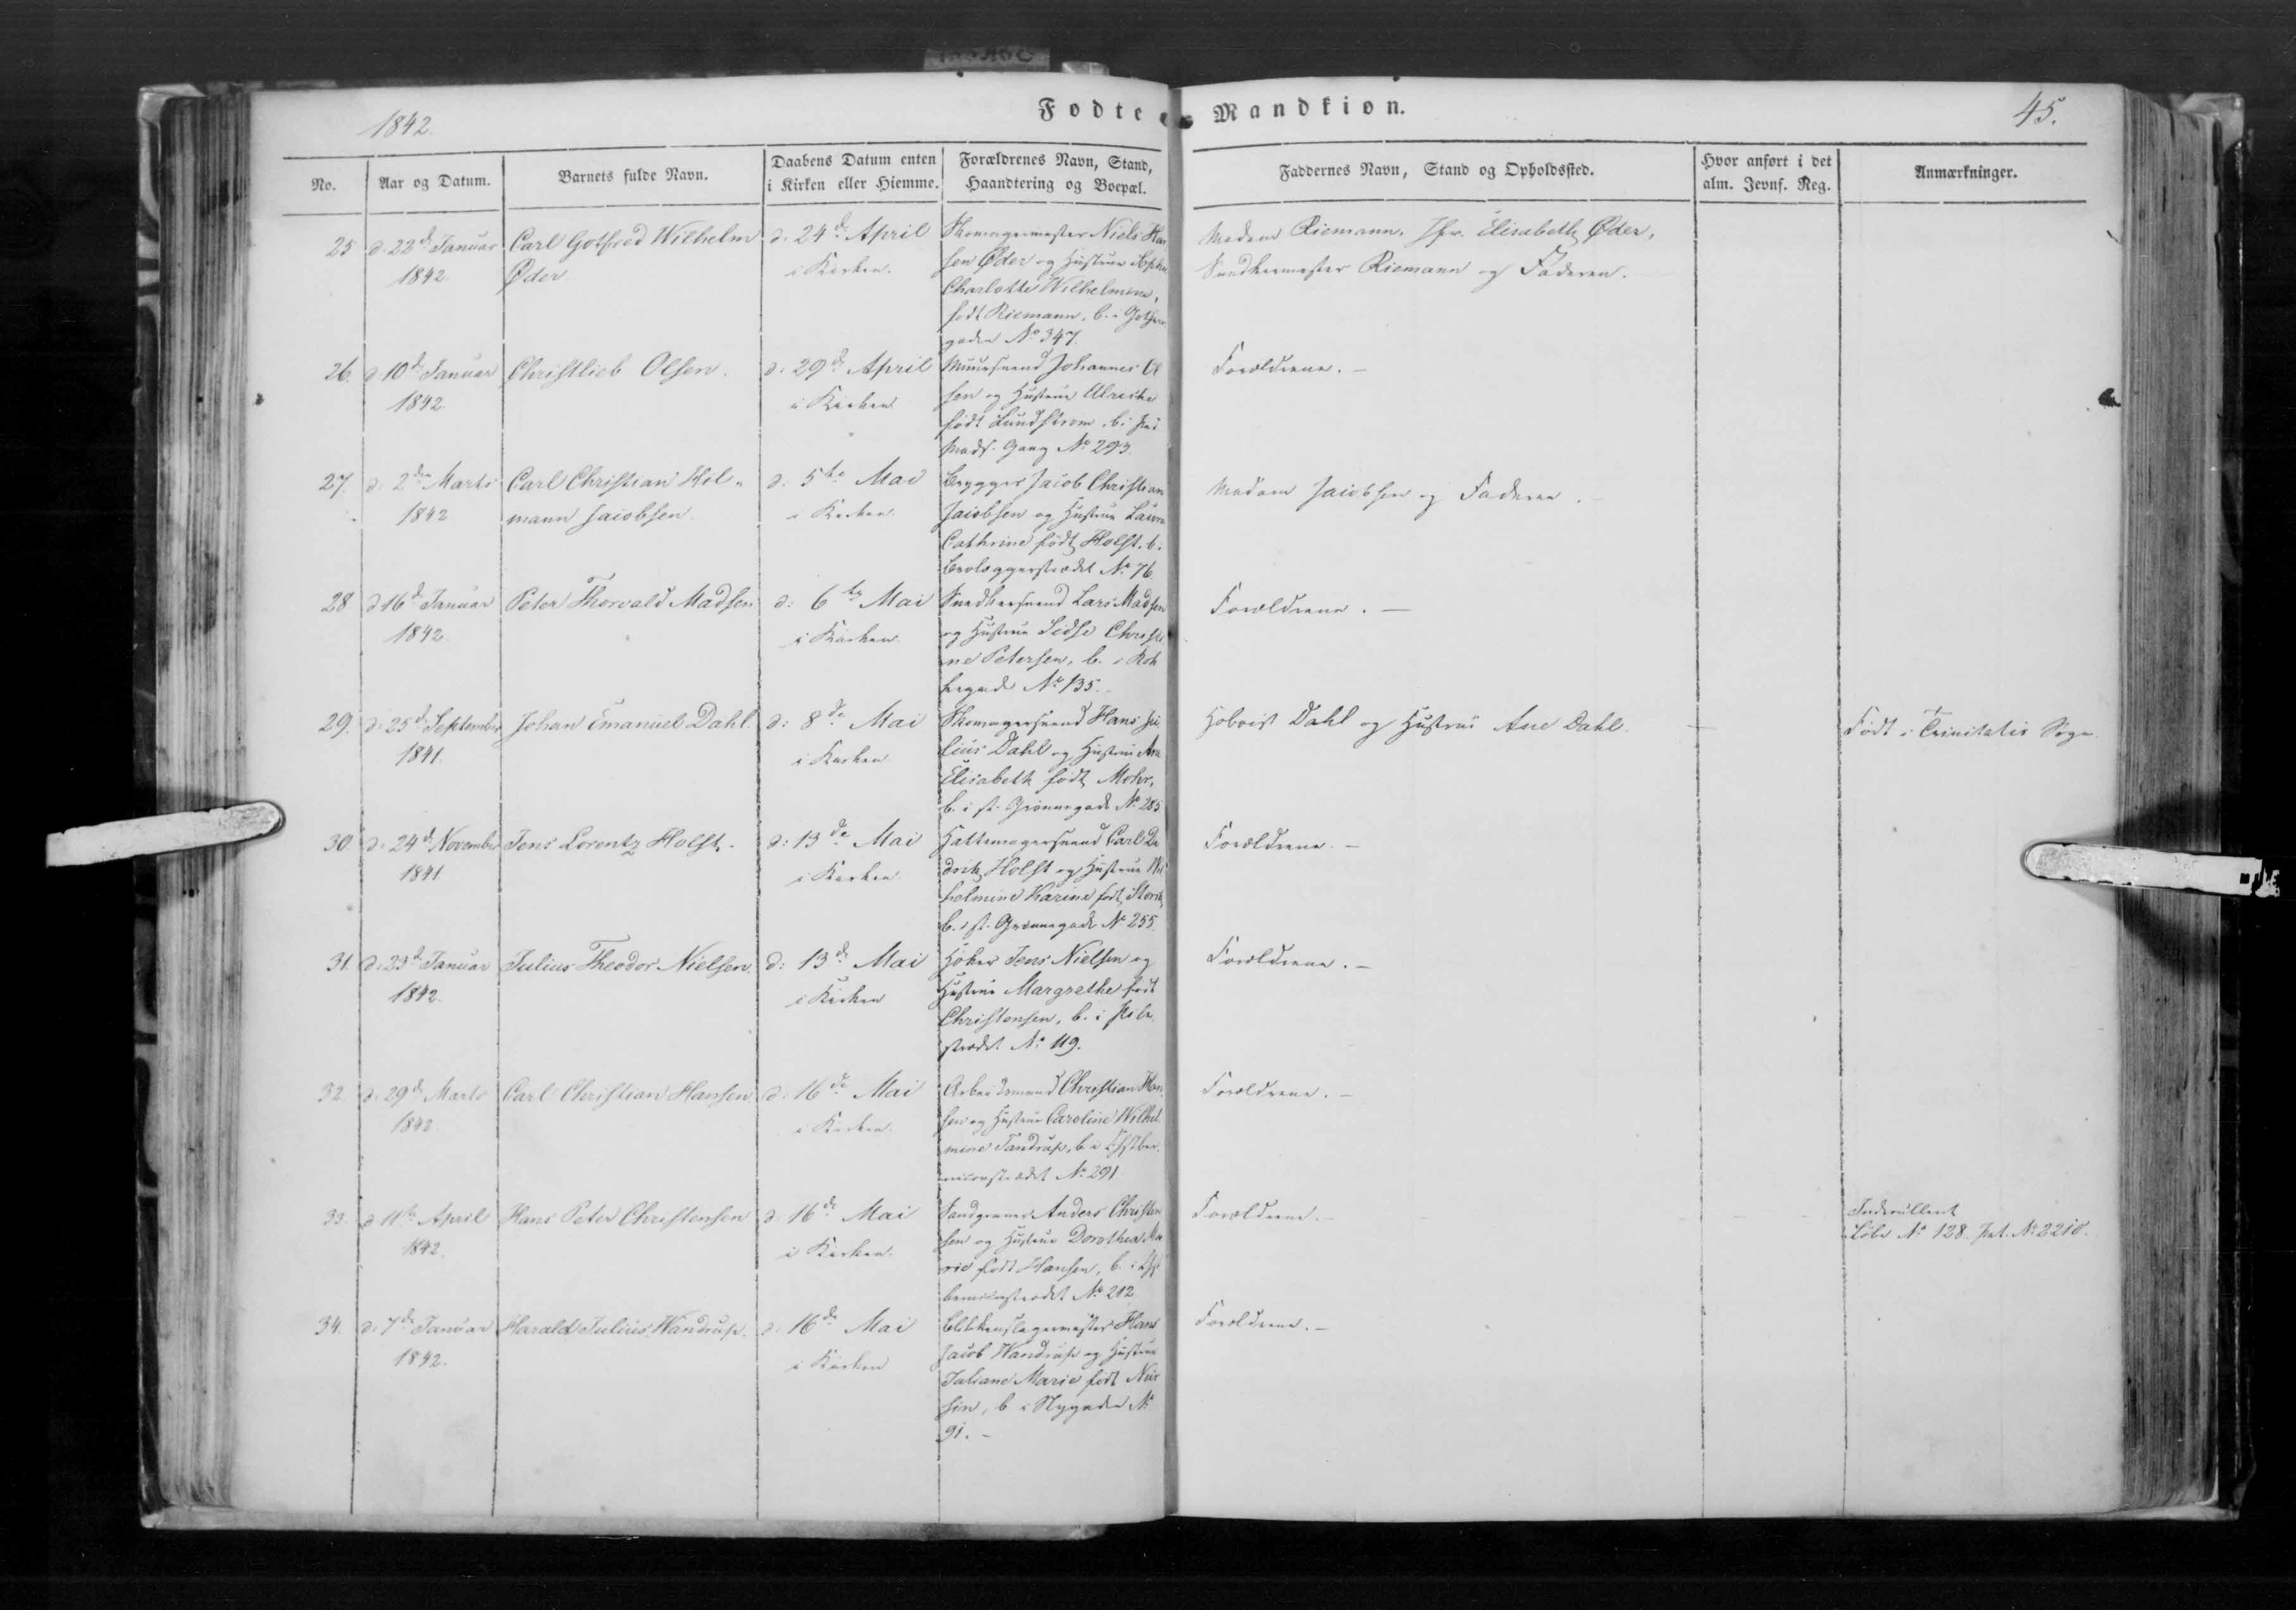 1842.
Fødte Mandkiøn.
45.
No.
Aar og Datum.
Barnets fulde Navn.
Daabens Datum enten
i Kirken eller Hiemme.
Forældrenes Navn, Stand,
Haandtering og Boepæl.
Faddernes Navn, Stand og Opholdssted.
Hvor anført i det
alm. Jevnf. Reg.
Anmærkninger.
25
d. 22de Januar
1842.
Carl Gotfred Wilhelm
Øder
d. 24de April
i Kirken.
Skomagermester Niels Han
sen Øder og Hustrue Sophie
Charlotte Wilhelmine,
født Riemann, b. i Gothers
gaden No 347.
Madam Riemann, Jfr. Elisabeth Øder,
Snedkermester Riemann og Faderen.
26.
d. 10de Januar
1842.
Christlieb Olsen.
d. 29de April
i Kirken
Muursvend Johannes Ol
sen og Hustrue Ulricke
født Lundstrøm, b. i
Mads. Gang No 293.
Forældrene. –
27.
d. 2den Marts
1842
Carl Christian Hil-
mann Jacobsen.
d. 5te Mai
i Kirken.
Brygger Jacob Christian
Jacobsen og Hustrue Laura
Cathrine født Holst, b. i
Brolæggerstrædet No 76.
Madam Jacobsen og Faderen. –
28
d 16de Januar
1842.
Peter Thorvald Madsen
d: 6te Mai
i Kirken.
Snedkersvend Lars Madsen
og Hustrue Sidse Christi
ne Petersen, b. i Rob
No 135.
Forældrene. –
29.
d. 25de September
1841.
Johan Emanuel Dahl.
d: 8de Mai
i Kirken
Skomagersvend Hans Ju
lius Dahl og Hustrue Ane
Elisabeth født Mohr,
b. i st. Grønnegade No 285
Hoboist Dahl og Hustrue Ane Dahl.
Født i Trinitatis Sogn.
30
d. 24de November
1841
Jens Lorentz Holst.
d: 13de Mai
i Kirken.
Hattemagersvend Carl Di
drik Holst og Hustrue Wil
helmine Karine født
b. i st. Grønnegade No 255.
Forældrene. –
31.
d. 23de Januar
1842.
Julius Theodor Nielsen.
d: 13de Mai
i Kirken
Høker Jens Nielsen og
Hustrue Margrethe født
Christensen, b. i Pile
strædet No 119.
Forældrene. –
32
d. 29de Marts
1842
Carl Christian Hansen
d. 16de Mai
i Kirken.
Arbeidsmand Christian Han
sen og Hustrue Caroline Wilhel
mine Tandrup, b. i
No 291
Forældrene. –
33.
d 11te April
1842.
Hans Peter Christensen
d. 16de Mai
i Kirken.
Anders Christen
sen og Hustrue Dorothea Ma
rie født Hansen, b. i
No 212
Forældrene. –
Inderulleret
Løbe No 128. Pat. No 2210.
34.
d. 7de Januar
1842.
Harald Julius Wandrup.
d. 16de Mai
i Kirken
Blikkenslagermester Hans
Jacob Wandrup og Hustrue
Juliane Marie født
b. i Nygade No
91. –
Forældrene. –